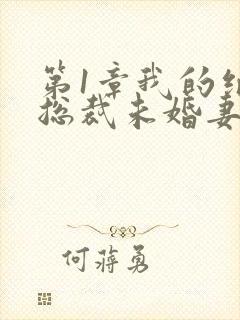 第1章我的
总裁未婚妻
何蒋勇